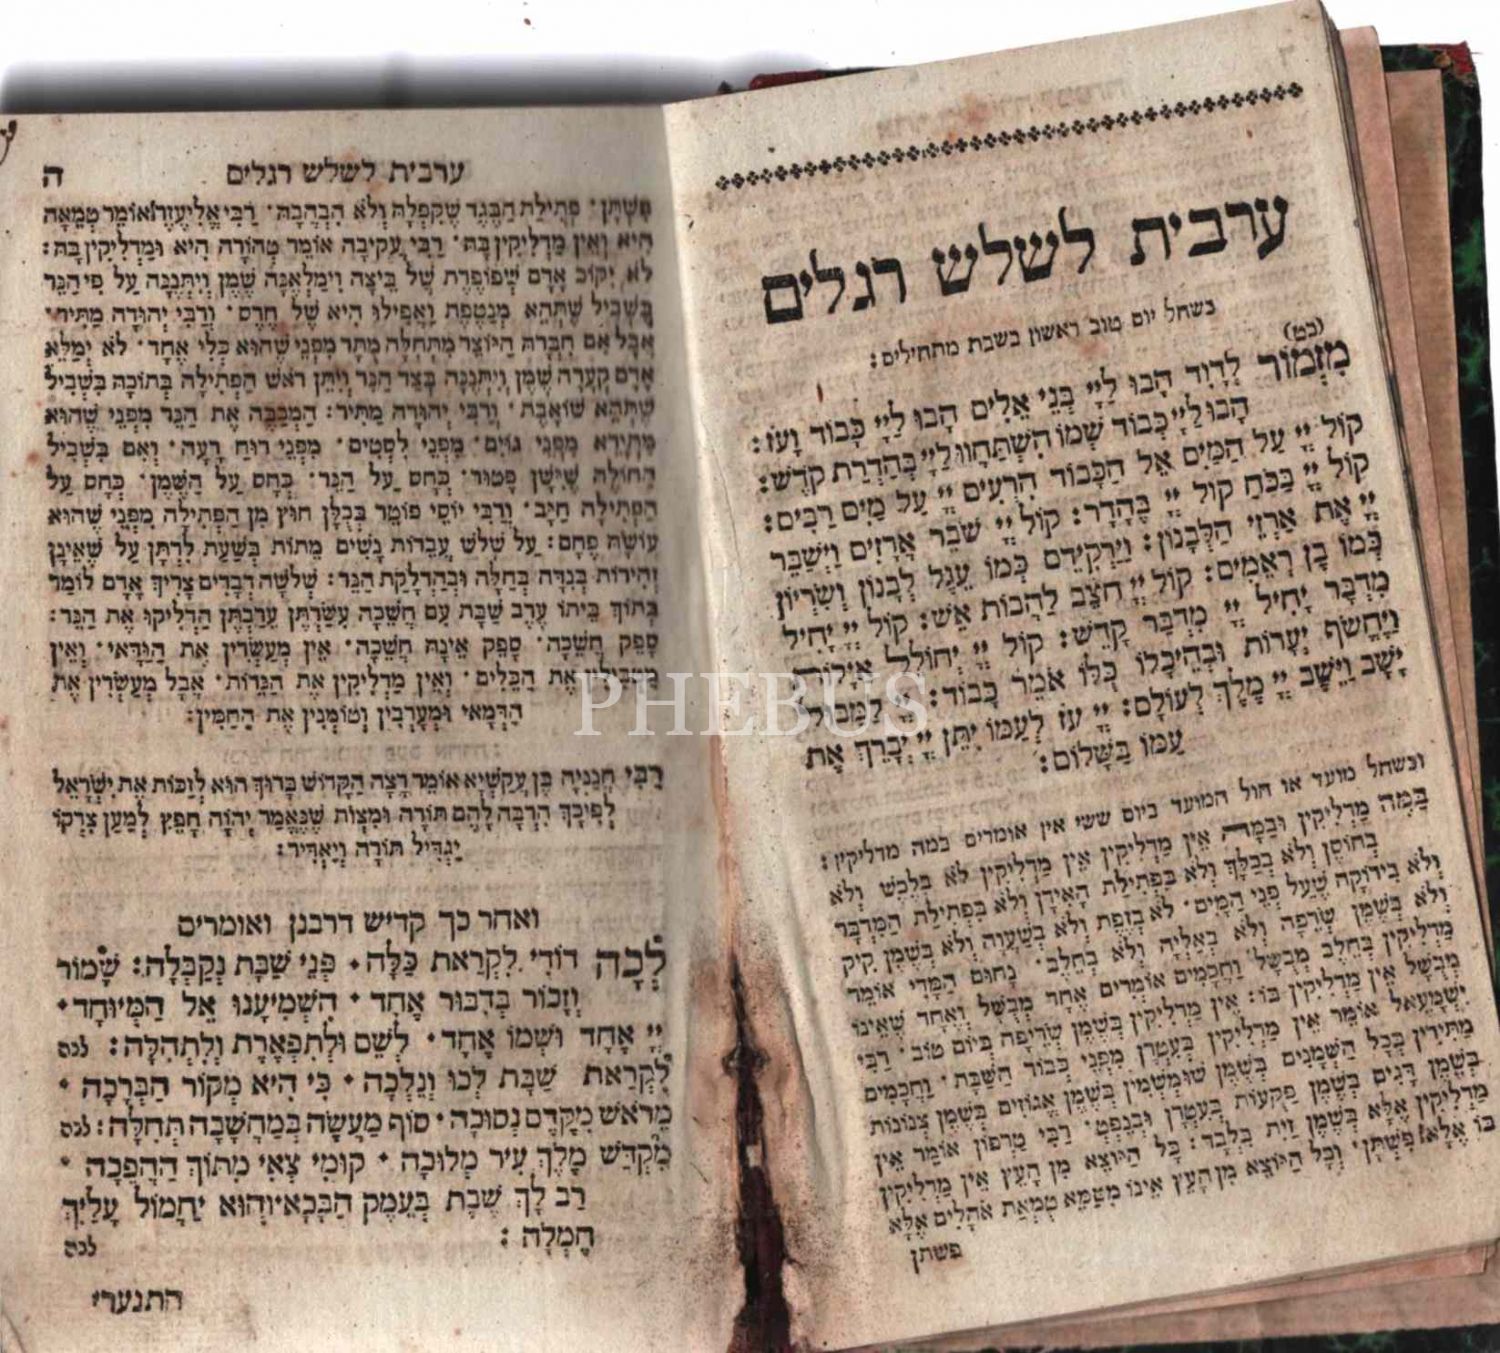 ערבית לשלש רגלים
כשחל יום טוב ראשון בשבת מתחילים:
(כט)
מִזְמוֹר לְדָוִד הָבוּ לַיְיָ בְּנֵי אֵלִים הָבוּ לַיְיָ כָּבוֹד וָעֹז:
הָבוּ לַיְיָ כְּבוֹד שְׁמוֹ הִשְׁתַּחֲווּ לַיְיָ בְּהַדְרַת קֹדֶשׁ:
קוֹל יְיָ עַל הַמָּיִם אֵל הַכָּבוֹד הִרְעִים יְיָ עַל מַיִם רַבִּים:
קוֹל יְיָ בַּכֹּחַ קוֹל יְיָ בֶּהָדָר: קוֹל יְיָ שֹׁבֵר אֲרָזִים וַיְשַׁבֵּר
יְיָ אֶת אַרְזֵי הַלְּבָנוֹן: וַיַּרְקִידֵם כְּמוֹ עֵגֶל לְבָנוֹן וְשִׂרְיוֹן
כְּמוֹ בֶן רְאֵמִים: קוֹל יְיָ חֹצֵב לַהֲבוֹת אֵשׁ: קוֹל יְיָ יָחִיל
מִדְבָּר יָחִיל יְיָ מִדְבַּר קָדֵשׁ: קוֹל יְיָ יְחוֹלֵל אַיָּלוֹת
וַיֶּחֱשֹׂף יְעָרוֹת וּבְהֵיכָלוֹ כֻּלּוֹ אֹמֵר כָּבוֹד: יְיָ לַמַּבּוּל
יָשָׁב וַיֵּשֶׁב יְיָ מֶלֶךְ לְעוֹלָם: יְיָ עֹז לְעַמּוֹ יִתֵּן יְיָ יְבָרֵךְ אֶת
עַמּוֹ בַשָּׁלוֹם:
וכשחל מועד או חול המועד ביום ששי אין אומרים במה מדליקין:
בַּמֶּה מַדְלִיקִין וּבַמָּה אֵין מַדְלִיקִין אֵין מַדְלִיקִין לֹא בְלֶכֶשׁ וְלֹא
בְחוֹסֶן וְלֹא בְכַלָּךְ וְלֹא בִּפְתִילַת הָאִידָן וְלֹא בִּפְתִילַת הַמִּדְבָּר
וְלֹא בִירוֹקָה שֶׁעַל פְּנֵי הַמָּיִם· לֹא בְזֶפֶת וְלֹא בְשַׁעֲוָה וְלֹא בְשֶׁמֶן קִיק
וְלֹא בְשֶׁמֶן שְׂרֵפָה וְלֹא בְאַלְיָה וְלֹא בְחֵלֶב· נָחוּם הַמָּדִי אוֹמֵר
מַדְלִיקִין בְּחֵלֶב מְבֻשָּׁל· וַחֲכָמִים אוֹמְרִים אֶחָד מְבֻשָּׁל וְאֶחָד שֶׁאֵינוֹ
מְבֻשָּׁל אֵין מַדְלִיקִין בּוֹ: אֵין מַדְלִיקִין בְּשֶׁמֶן שְׂרֵיפָה בְּיוֹם טוֹב· רַבִּי
יִשְׁמָעֵאל אוֹמֵר אֵין מַדְלִיקִין בְּעִטְרָן מִפְּנֵי כְּבוֹד הַשַּׁבָּת· וַחֲכָמִים
מַתִּירִין בְּכָל הַשְּׁמָנִים בְּשֶׁמֶן שׁוּמְשְׁמִין בְּשֶׁמֶן אֱגוֹזִים בְּשֶׁמֶן צְנוֹנוֹת
בְּשֶׁמֶן דָּגִים בְּשֶׁמֶן פַּקֻּעוֹת בְּעִטְרָן וּבְנֵפְטְ· רַבִּי טַרְפוֹן אוֹמֵר אֵין
מַדְלִיקִין אֶלָּא בְּשֶׁמֶן זַיִת בִּלְבָד: כָּל הַיּוֹצֵא מִן הָעֵץ אֵין מַדְלִיקִין
בּוֹ אֶלָּא פִּשְׁתָּן· וְכָל הַיּוֹצֵא מִן הָעֵץ אֵינוֹ מִטַּמֵּא טֻמְאַת אֹהָלִים אֶלָּא
פשתן
ערבית לשלש רגלים ה
פִּשְׁתָּן· פְּתִילַת הַבֶּגֶד שֶׁקִּפְּלָהּ וְלֹא הִבְהֲבָהּ· רַבִּי אֱלִיעֶזֶר אוֹמֵר טְמֵאָה
הִיא וְאֵין מַדְלִיקִין בָּהּ· רַבִּי עֲקִיבָה אוֹמֵר טְהוֹרָה הִיא וּמַדְלִיקִין בָּהּ:
לֹא יִקּוֹב אָדָם שְׁפוֹפֶרֶת שֶׁל בֵּיצָה וִימַלְאֶנָּה שֶׁמֶן וְיִתְּנֶנָּה עַל פִּי הַנֵּר
בִּשְׁבִיל שֶׁתְּהֵא מְנַטֶּפֶת וַאֲפִילוּ הִיא שֶׁל חֶרֶס· וְרַבִּי יְהוּדָה מַתִּיר·
אֲבָל אִם חִבְּרָהּ הַיּוֹצֵר מִתְּחִלָּה מֻתָּר מִפְּנֵי שֶׁהוּא כְּלִי אֶחָד· לֹא יְמַלֵּא
אָדָם קְעָרָה שֶׁמֶן וְיִתְּנֶנָּה בְּצַד הַנֵּר וְיִתֵּן רֹאשׁ הַפְּתִילָה בְּתוֹכָהּ בִּשְׁבִיל
שֶׁתְּהֵא שׁוֹאֶבֶת· וְרַבִּי יְהוּדָה מַתִּיר: הַמְכַבֶּה אֶת הַנֵּר מִפְּנֵי שֶׁהוּא
מִתְיָרֵא מִפְּנֵי גוֹיִם· מִפְּנֵי לִסְטִים· מִפְּנֵי רוּחַ רָעָה· וְאִם בִּשְׁבִיל
הַחוֹלֶה שֶׁיִּישָׁן פָּטוּר· כְּחָס עַל הַנֵּר· כְּחָס עַל הַשֶּׁמֶן· כְּחָס עַל
הַפְּתִילָה חַיָּב· וְרַבִּי יוֹסֵי פּוֹטֵר בְּכֻלָּן חוּץ מִן הַפְּתִילָה מִפְּנֵי שֶׁהוּא
עוֹשָׂהּ פֶּחָם: עַל שָׁלֹשׁ עֲבֵרוֹת נָשִׁים מֵתוֹת בִּשְׁעַת לֵדָתָן עַל שֶׁאֵינָן
זְהִירוֹת בְּנִדָּה בְּחַלָּה וּבְהַדְלָקַת הַנֵּר: שְׁלֹשָׁה דְבָרִים צָרִיךְ אָדָם לוֹמַר
בְּתוֹךְ בֵּיתוֹ עֶרֶב שַׁבָּת עִם חֲשֵׁכָה עִשַּׂרְתֶּן עֵרַבְתֶּן הַדְלִיקוּ אֶת הַנֵּר:
סָפֵק חֲשֵׁכָה· סָפֵק אֵינָהּ חֲשֵׁכָה· אֵין מְעַשְּׂרִין אֶת הַוַּדָּאי· וְאֵין
מַטְבִּילִין אֶת הַכֵּלִים· וְאֵין מַדְלִיקִין אֶת הַנֵּרוֹת· אֲבָל מְעַשְּׂרִין אֶת
הַדְּמַאי וּמְעָרְבִין וְטוֹמְנִין אֶת הַחַמִּין:
רַבִּי חֲנַנְיָה בֶּן עֲקַשְׁיָא אוֹמֵר רָצָה הַקָּדוֹשׁ בָּרוּךְ הוּא לְזַכּוֹת אֶת יִשְׂרָאֵל
לְפִיכָךְ הִרְבָּה לָהֶם תּוֹרָה וּמִצְוֹת שֶׁנֶּאֱמַר יְהוָה חָפֵץ לְמַעַן צִדְקוֹ
יַגְדִּיל תּוֹרָה וְיַאְדִּיר:
ואחר כך קדיש דרבנן ואומרים
לְכָה דוֹדִי לִקְרַאת כַּלָּה· פְּנֵי שַׁבָּת נְקַבְּלָה: שָׁמוֹר
וְזָכוֹר בְּדִבּוּר אֶחָד· הִשְׁמִיעָנוּ אֵל הַמְּיוּחָד·
יְיָ אֶחָד וּשְׁמוֹ אֶחָד· לְשֵׁם וּלְתִפְאֶרֶת וְלִתְהִלָּה: לכה
לִקְרַאת שַׁבָּת לְכוּ וְנֵלְכָה· כִּי הִיא מְקוֹר הַבְּרָכָה·
מֵרֹאשׁ מִקֶּדֶם נְסוּכָה· סוֹף מַעֲשֶׂה בְּמַחֲשָׁבָה תְּחִלָּה: לכה
מִקְדַּשׁ מֶלֶךְ עִיר מְלוּכָה· קוּמִי צְאִי מִתּוֹךְ הַהֲפֵכָה·
רַב לָךְ שֶׁבֶת בְּעֵמֶק הַבָּכָא· וְהוּא יַחֲמוֹל עָלַיִךְ
חֶמְלָה: לכה
התנערי
PHEBUS